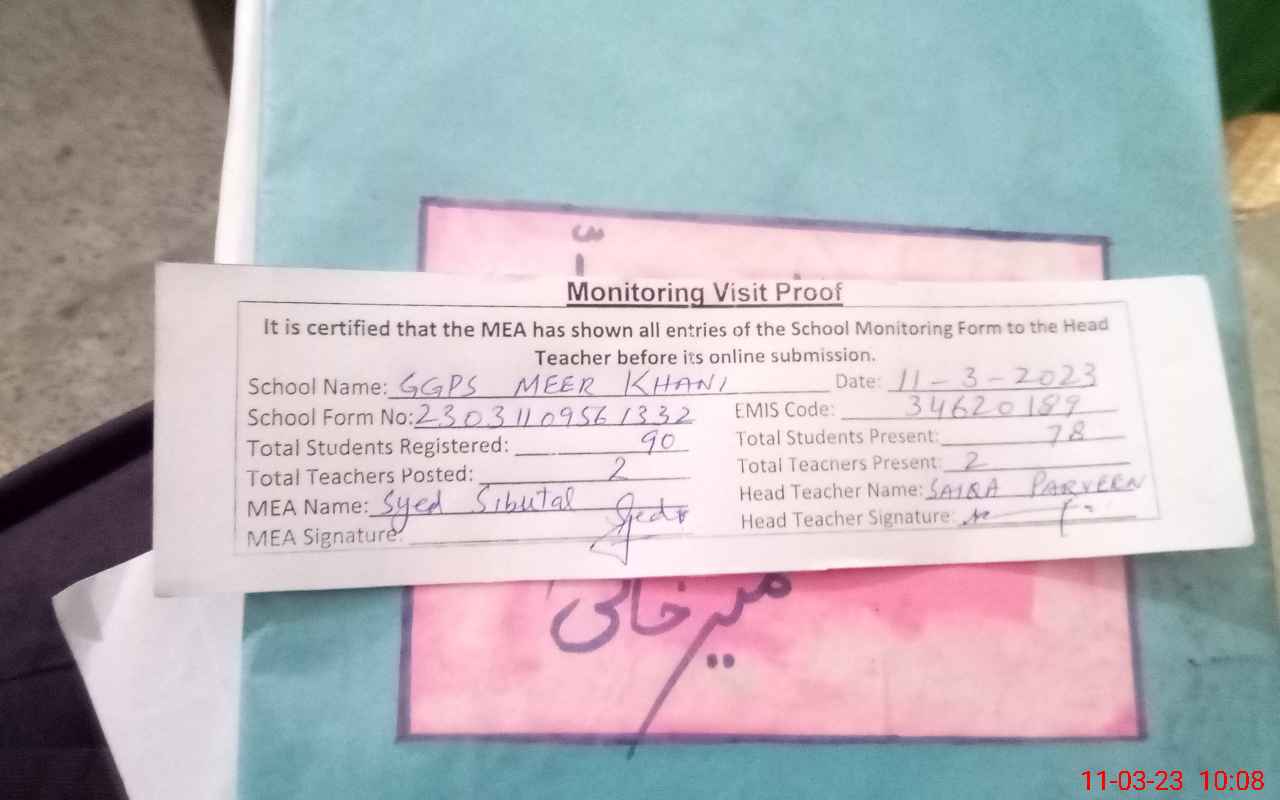 Monitoring Visit Proof
It is certified that the MEA has shown all entries of the School Monitoring Form to the Head
Teacher before its online submission.
School Name: GGPS MEER KHANI Date: 11-3-2023
School Form No: 23031109561332 EMIS Code: 34620189
Total Students Registered: 90 Total Students Present: 78
Total Teachers Posted: 2 Total Teachers Present: 2
MEA Name: Syed Sibutal Head Teacher Name: SAIRA PARVEEN
MEA Signature: Head Teacher Signature:
میر خانی
11-03-23 10:08